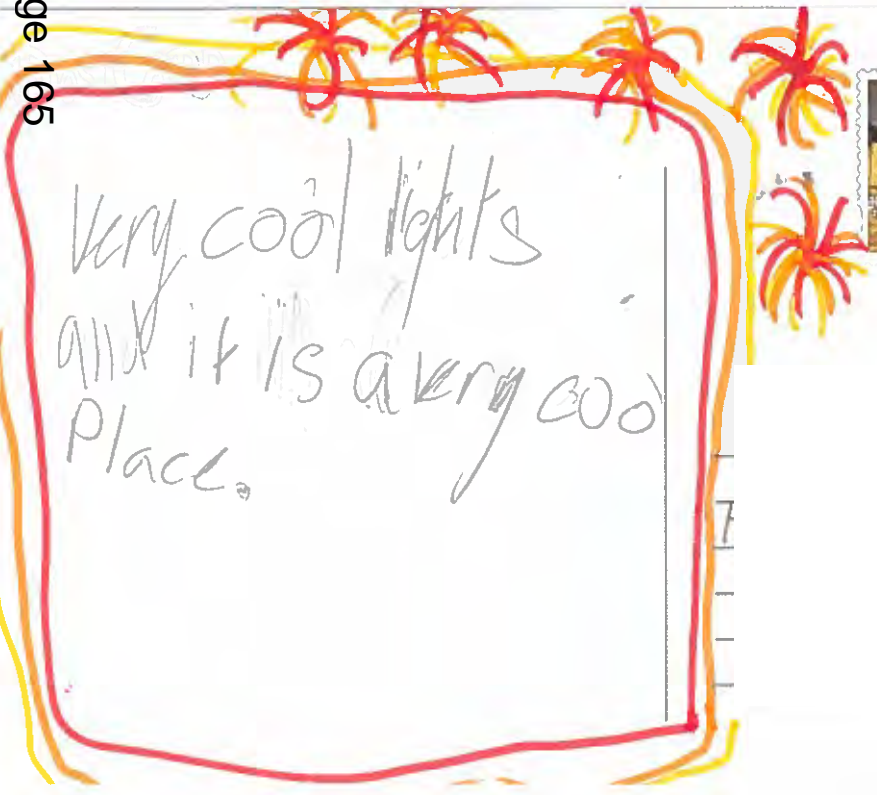 ge 165
Very cool lights
and it is a very coo
Place.